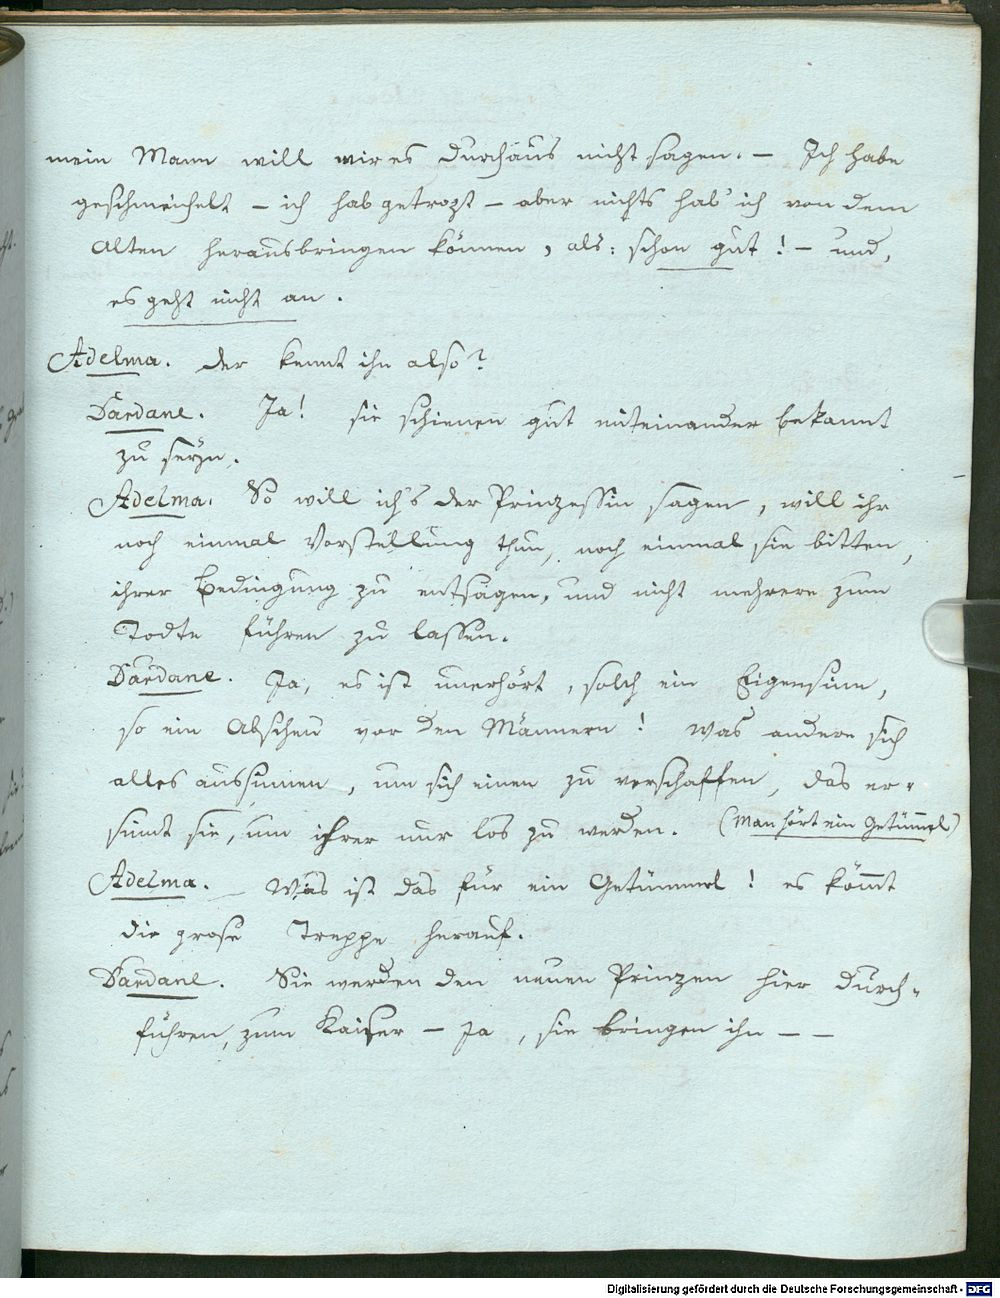 mein Mann will mir es durchaus nicht sagen. – Ich habe
geschmeichelt – ich hab getrozt – aber nichts hab' ich von dem
Alten herausbringen können, als: schon gut! – und,
es geht nicht an.
Adelma. Der kennt ihn also?
Dardane. Ja! sie schienen gut miteinander bekannt
zu seÿn.
Adelma. So will ich's der Prinzessin sagen, will ihr
noch einmal Vorstellung thun, noch einmal sie bitten,
ihrer Bedingung zu entsagen, und nicht mehrere zum
Todte führen zu lassen.
Dardane. Ja, es ist unerhört, solch ein Eigensinn,
so ein Abscheu vor den Männern! Was andere sich
alles aussinnen, um sich einen zu verschaffen, das er-
sinnt sie, um ihrer nur los zu werden. (Man hört ein Getümmel)
Adelma. – Was ist das für ein Getümmel! es kömmt
die grose Treppe herauf.
Dardane. Sie werden den neuen Prinzen hier durch-
führen, zum Kaiser – Ja, sie bringen ihn – –
Digitalisierung gefördert durch die Deutsche Forschungsgemeinschaft - DFG